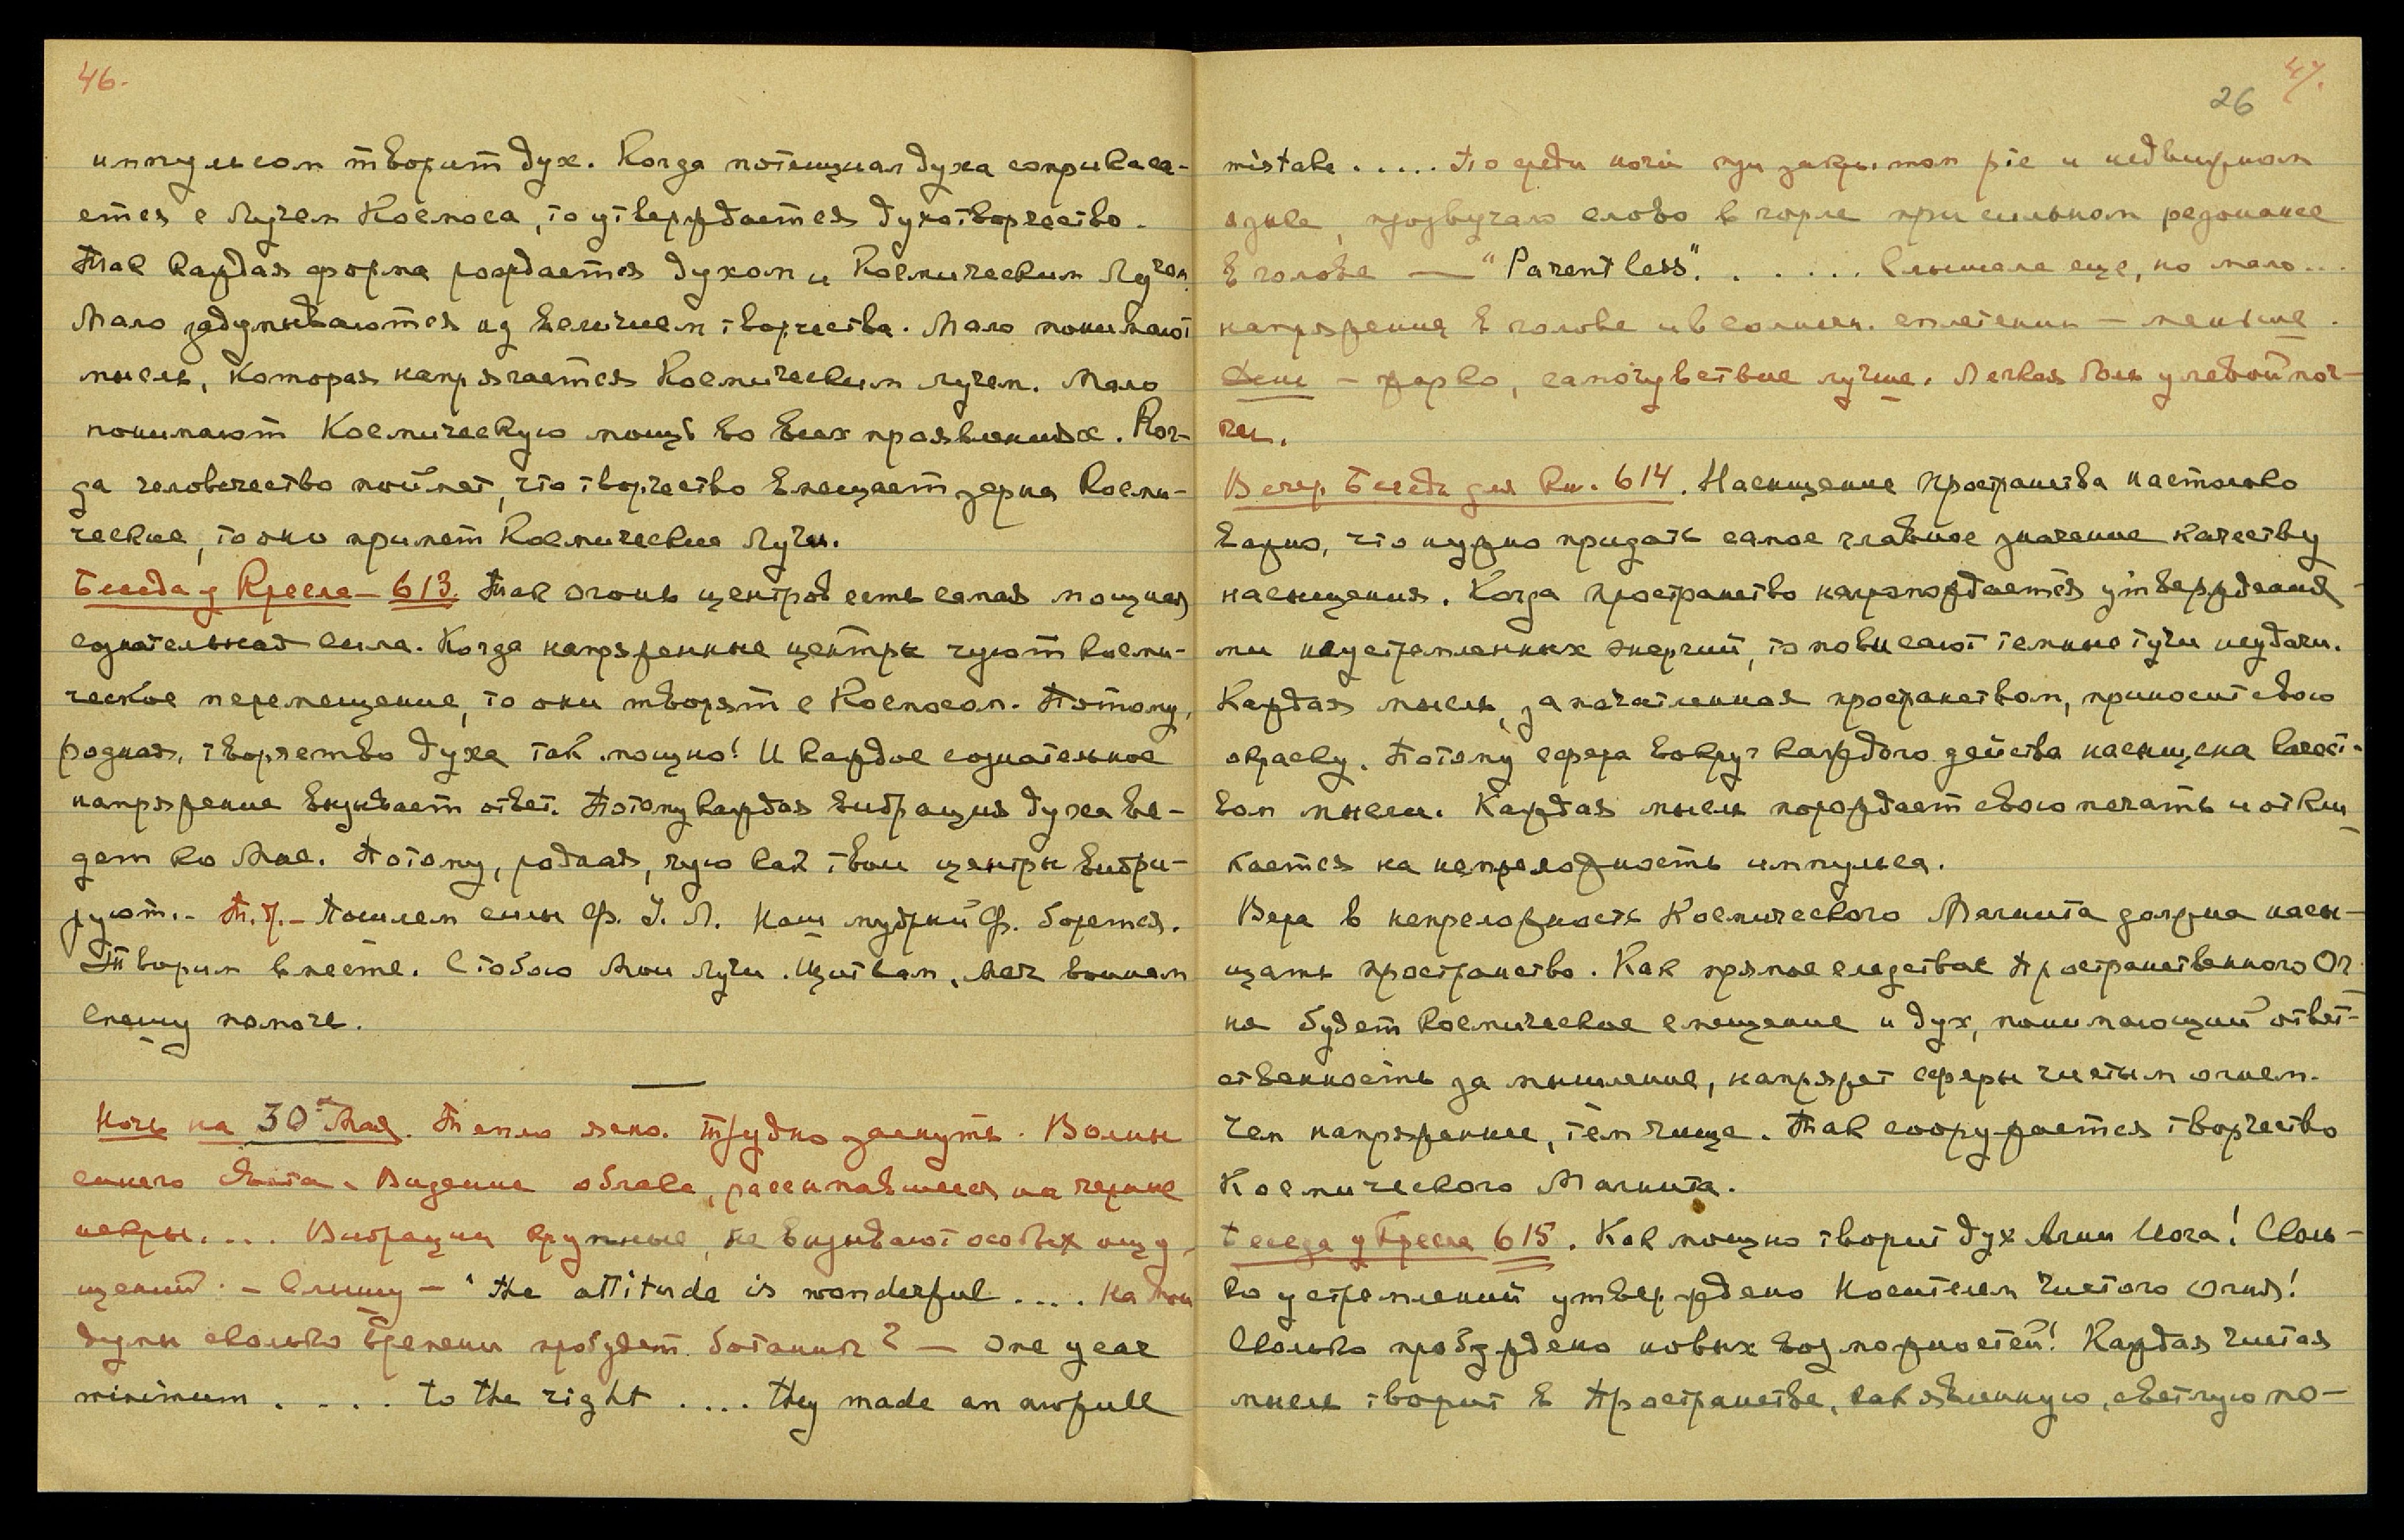 46.
импульсом творит дух. Когда потенциал духа соприкаса-
ется с Лучем Космоса, то утверждается духотворчество.
Так каждая форма рождается духом и Космическим Лучем
Мало задумываются над величием творчества. Мало понимают
мысль, которая напрягается Космическим лучем. Мало
понимают Космическую мощь во всех проявлениях. Ког-
да человечество поймет, что творчество вмещает зерна Косми-
ческие, то они примет Космические Лучи.
Беседа у Кресла - 613. Так огонь центров есть самая мощная
сознательная сила. Когда напряженные центры чуют Косми-
ческое перемещение, то они творят с Космосом. Потому,
родная, творчество духа так мощно! И каждое сознательное
напряжение вызывает ответ. Потому каждая вибрация духа ве-
дет ко Мне. Потому, родная, чую как твои центры вибри-
руют. - П.Ч. - Пошлем силы Ф. J. Л. Наш мудрый Ф. борется.
Творим вместе. С тобою Мои Лучи. Щит вам, меч воинам
Спешу помочь.
Ночь на 30ое Мая. Тепло ясно. Трудно заснуть. Волны
синего света. Видение облака, рассыпавшееся на черные
искры.... Вибрации крупные, не вызывают особых ощу-
щений. - Слышу - "the attitude is wonderful.... На мои
думы сколько времени пробудет ботаник? - One year
minimum . . . . to the right .... they made an awfull
47.
26
mistake ..... По среди ночи при закрытом рте и недвижном
языке, прозвучало слово в горле при сильном резонансе
в голове — "Parentless". . . . . . . Слышала еще, но мало...
напряжения в голове и в солнечн. сплетении — меньше.
День - жарко, самочувствие лучше. Легкая боль у левой поч-
ки.
Вечер. Беседа для Кн. 614. Насыщение пространства настолько
важно, что нужно придать самое главное значение качеству
насыщения. Когда пространство нагромождается утверждения-
ми неустремленных энергий, то нависают темные тучи неудачи.
Каждая мысль, запечатленная пространством, приносит свою
окраску. Потому сфера вокруг каждого действа насыщена качест-
вом мысли. Каждая мысль порождает свою печать и откли-
кается на непреложность импульса.
Вера в непреложность Космического Магнита должна насы-
щать пространство. Как прямое следствие Пространственного Ог-
ня будет Космическое смещение и дух, понимающий ответ-
ственность за мышление, напряжет сферы чистым огнем.
Чем напряженнее, тем чище. Так сооружается творчество
Космического Магнита.
Беседа у Кресла 615. Как мощно творит дух Агни Йога! Сколь-
ко устремлений утверждено Носителем Чистого Огня!
Сколько пробуждено новых возможностей! Каждая чистая
мысль творит в Пространстве, как явленную, светлую по-